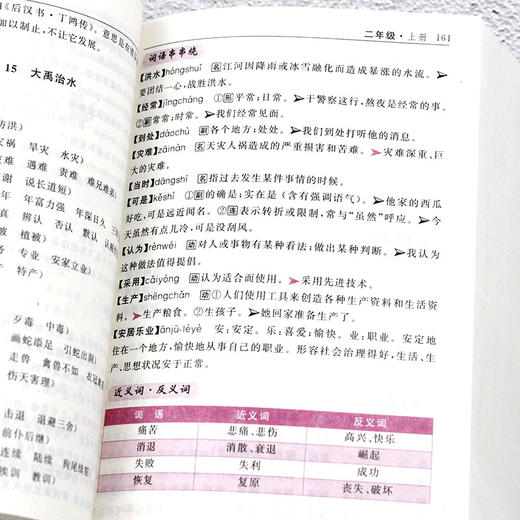 《后汉书·丁鸿传》。意思是在
加以制止，不让它发展。
15 大禹治水
防洪）
灾祸 旱灾 水灾）
灾难 遇难 责难 难兄难弟）
谢 说长道短）
年 年富力强 年深日久
真 辨认 否认 默认
被 植被）
务 专业 安家立业）
产 特产）
歹毒 中毒）
画蛇添足 引蛇出洞）
走兽 禽兽不如 衣冠
伤天害理）
击退 退避三舍）
前仆后继）
连续 陆续 狗尾续貂）
教训）
二年级·上册 161
词语串串烧
【洪水】hóngshuǐ 名江河因降雨或冰雪融化而造成暴涨的水流。➤
要团结一心，战胜洪水。
【经常】jīngcháng ①形平常；日常。➤干警察这行，熬夜是经常的事。
②副常常；时常。➤我们经常见面。
【到处】dàochù 副各个地方；处处。➤我们到处打听他的消息。
【灾难】zāinàn 名天灾人祸造成的严重损害和苦难。➤灾难深重、巨
大的灾难。
【当时】dāngshí 名指过去发生某件事情的时候。
【可是】kěshì ①副的确是；实在是（含有强调语气）。➤他家的西瓜
好吃，可是远近闻名。②连表示转折或限制，常与“虽然”呼应。➤今
天虽然有点儿冷，可是没刮风。
【认为】rènwéi 动对人或事物有某种看法；做出某种判断。➤我认为
这种做法值得提倡。
【采用】cǎiyòng 动认为适合而使用。➤采用先进技术。
【生产】shēngchǎn 动①人们使用工具来创造各种生产资料和生活资
料。➤生产粮食。②生孩子。➤她回家准备生产了。
【安居乐业】ānjū-lèyè 安：安定。乐：喜爱；愉快。业：职业。安定地
住在一个地方，愉快地从事自己的职业。形容社会治理得好，生活、生
产、思想状况安于正常。
近义词·反义词
词语 近义词 反义词
痛苦 悲痛、悲伤 高兴、快乐
消退 消散、衰退 崛起
失败 失利 成功
恢复 复原 丧失、破坏